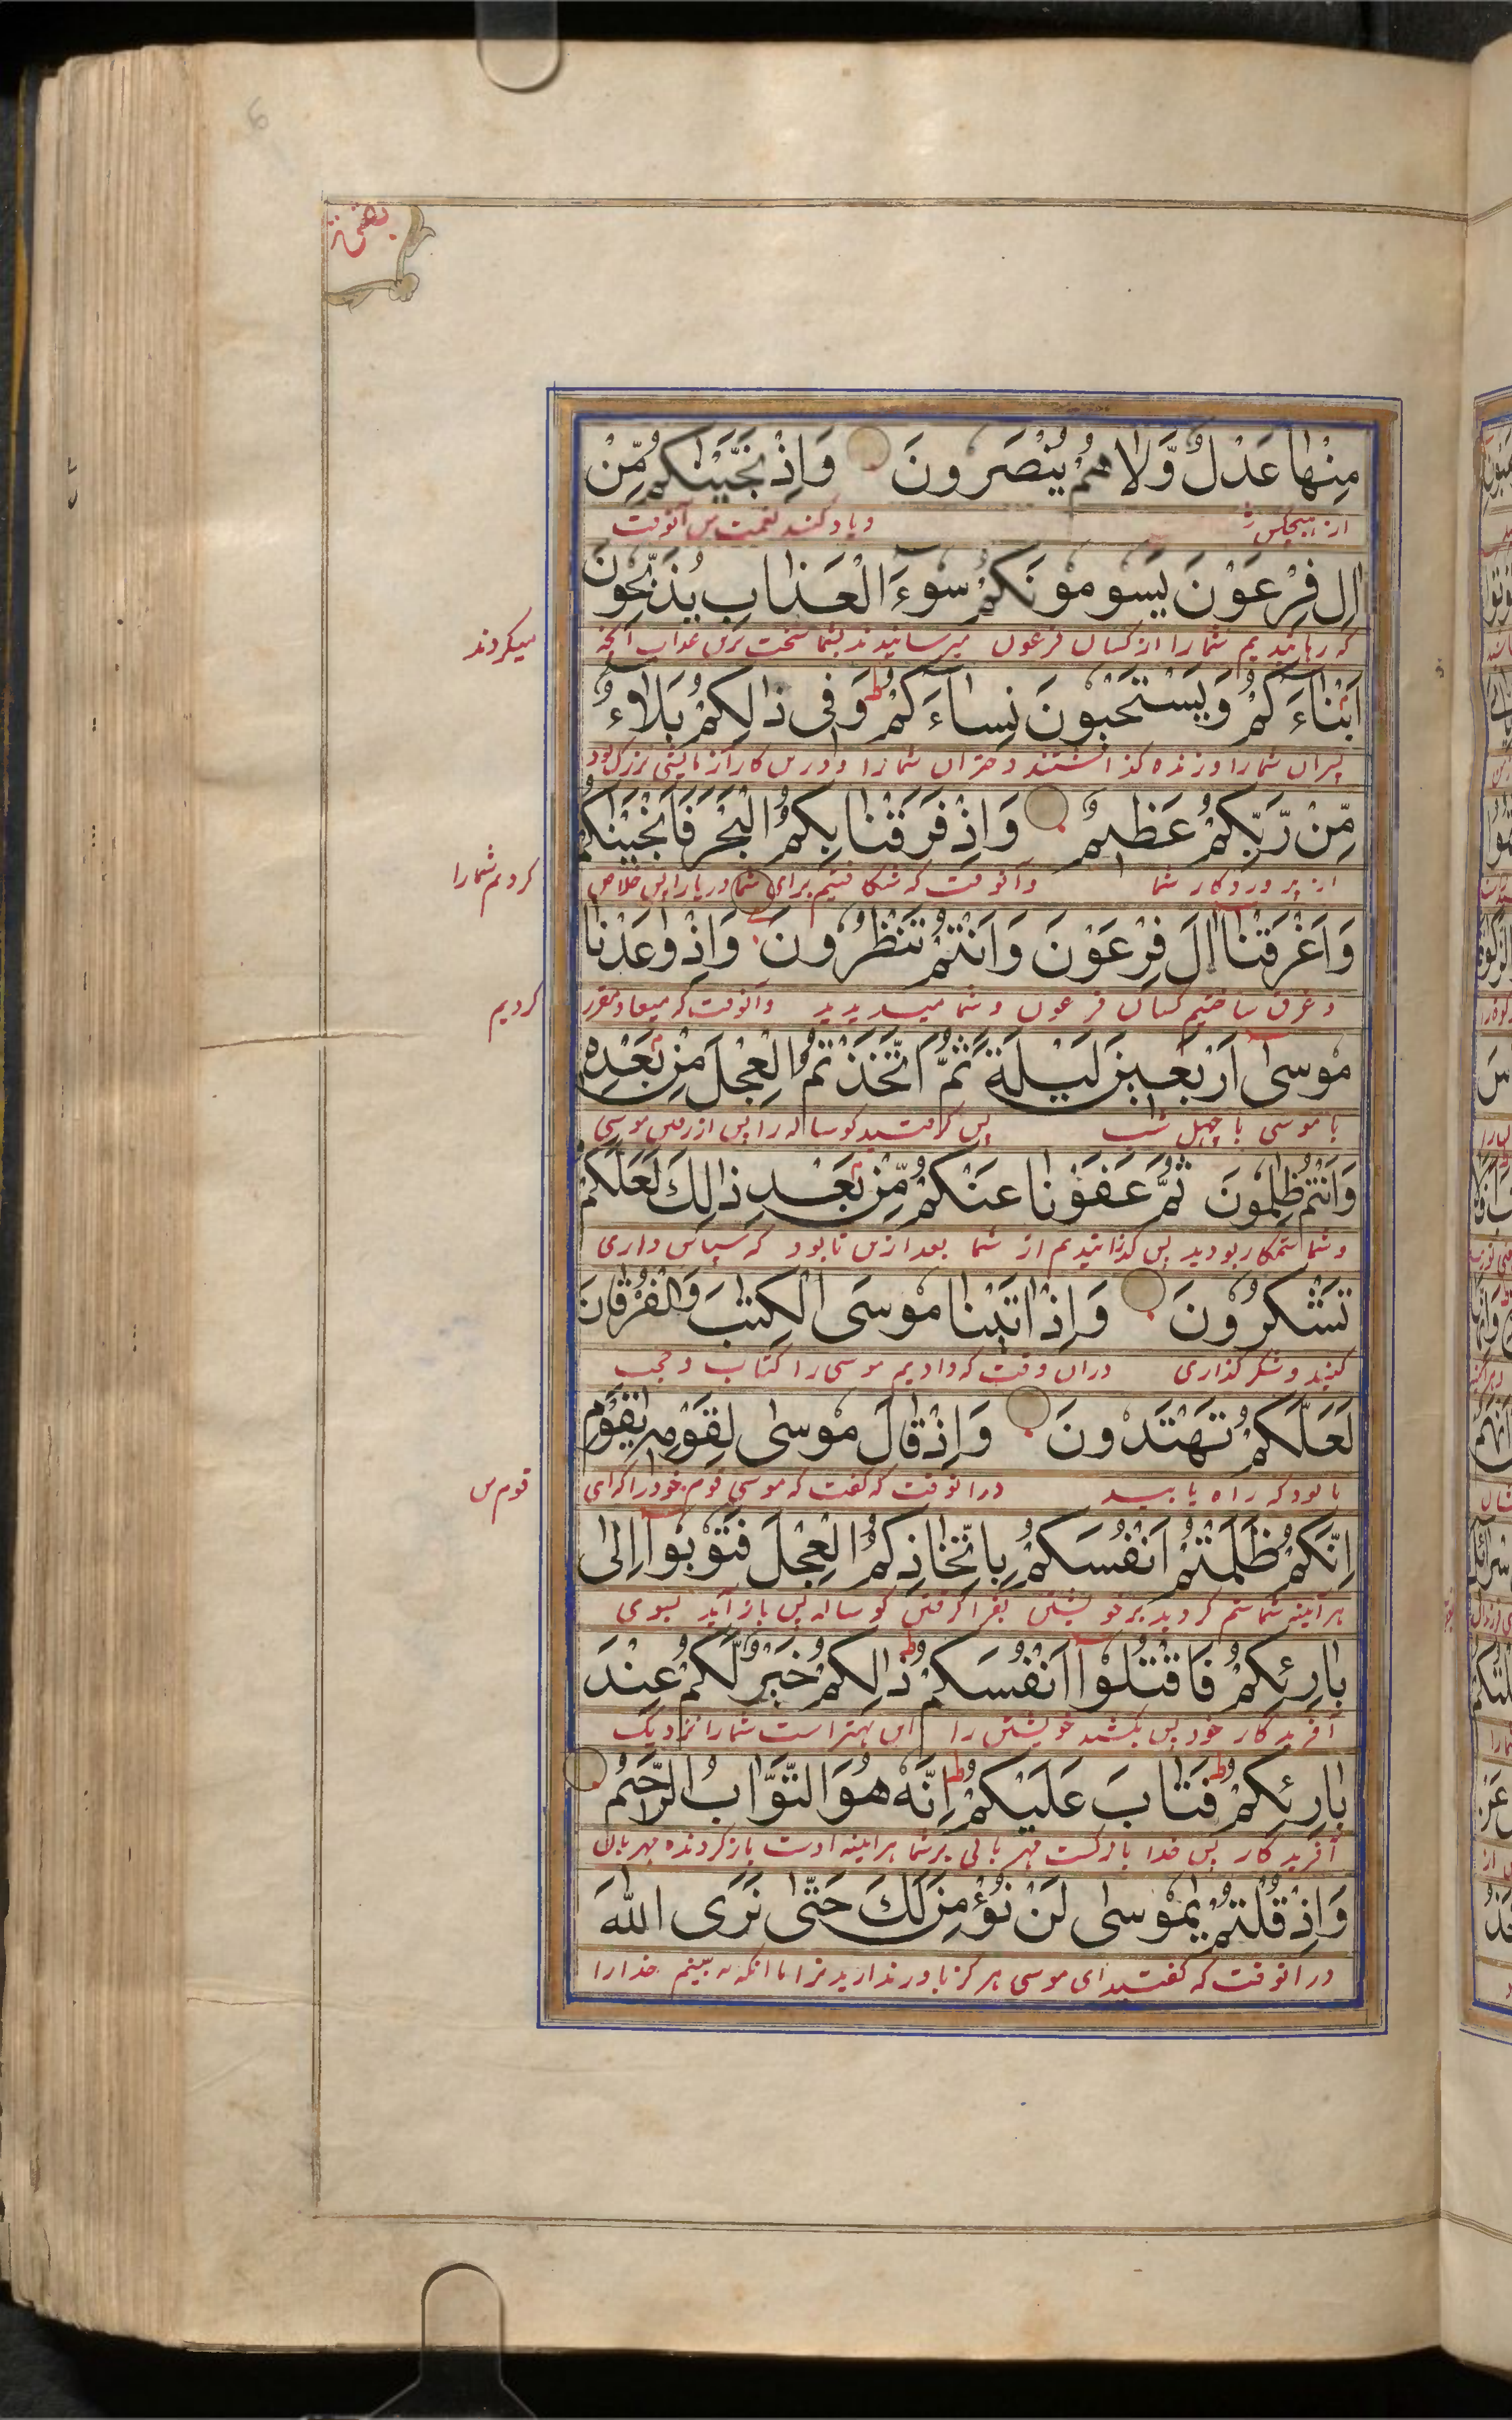 مِنْهَا عَدْلٌ وَّلَا هُمْ يُنْصَرُونَ وَاِذْ نَجَّيْنٰكُمْ مِّنْ
از هیچکس و یاد کنید نعمت من آنوقت
اٰلِ فِرْعَوْنَ يَسُومُونَكُمْ سُوءَ الْعَذَابِ يُذَبِّحُونَ
که رهانیدیم شما را از کسان فرعون میرسانیدند بشما سخت ترین عذاب آنچه
میکردند
اَبْنَاءَكُمْ وَيَسْتَحْيُونَ نِسَاءَكُمْ ط وَفِى ذٰلِكُمْ بَلَاءٌ
پسران شما را و زنده گذاشتند دختران شما را و درین کار آزمایشی بزرگ بود
مِّنْ رَّبِّكُمْ عَظِيمٌ وَاِذْ فَرَقْنَا بِكُمُ الْبَحْرَ فَاَنْجَيْنٰكُمْ
از پروردگار شما و آنوقت که شکافتیم برای شما دریا را پس خلاص
کردیم شما را
وَاَغْرَقْنَا اٰلَ فِرْعَوْنَ وَاَنْتُمْ تَنْظُرُونَ وَاِذْ وٰعَدْنَا
و غرق ساختیم کسان فرعون و شما میدیدید و آنوقت که میعاد مقرر
کردیم
مُوسٰى اَرْبَعِينَ لَيْلَةً ثُمَّ اتَّخَذْتُمُ الْعِجْلَ مِنْ بَعْدِهٖ
با موسی با چهل شب پس گرفتید گوساله را پس از رفتن موسی
وَاَنْتُمْ ظٰلِمُونَ ثُمَّ عَفَوْنَا عَنْكُمْ مِّنْ بَعْدِ ذٰلِكَ لَعَلَّكُمْ
و شما ستمکار بودید پس گذرانیدیم از شما بعد ازین تا بود که سپاس داری
تَشْكُرُونَ وَاِذْ اٰتَيْنَا مُوسَى الْكِتٰبَ وَالْفُرْقَانَ
کنید و شکر گذاری دران وقت که دادیم موسی را کتاب و حجت
لَعَلَّكُمْ تَهْتَدُونَ وَاِذْ قَالَ مُوسٰى لِقَوْمِهٖ يٰقَوْمِ
تا بود که راه یابید در آنوقت که گفت که موسی قوم خود را که ای
قوم من
اِنَّكُمْ ظَلَمْتُمْ اَنْفُسَكُمْ بِاتِّخَاذِكُمُ الْعِجْلَ فَتُوْبُوْا اِلٰى
هر آینه شما ستم کردید بر خویشتن بفرا گرفتن گوساله پس باز آیید بسوی
بَارِئِكُمْ فَاقْتُلُوْا اَنْفُسَكُمْ ط ذٰلِكُمْ خَيْرٌ لَّكُمْ عِنْدَ
آفریدگار خود پس بکشید خویشتن را این بهتر است شما را نزدیک
بَارِئِكُمْ ط فَتَابَ عَلَيْكُمْ ط اِنَّهٗ هُوَ التَّوَّابُ الرَّحِيْمُ
آفریدگار پس خدا بازگشت مهربانی بر شما هر آینه اوست بازگردنده مهربان
وَاِذْ قُلْتُمْ يٰمُوْسٰى لَنْ نُّؤْمِنَ لَكَ حَتّٰى نَرَى اللّٰهَ
در آنوقت که گفتید ای موسی هرگز باور نداریم ترا تا آنکه به بینیم خدا را